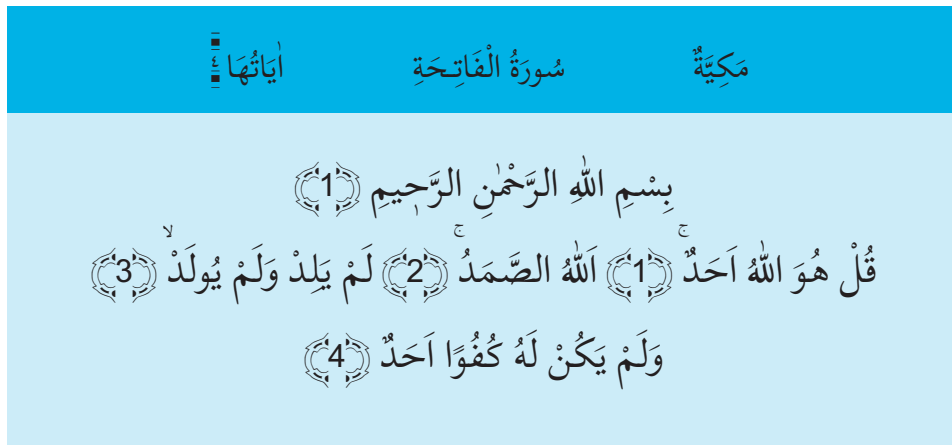 مَكِيَّةٌ سُورَةُ الْفَاتِحَةِ اٰيَاتُهَا ٤
بِسْمِ اللّٰهِ الرَّحْمٰنِ الرَّحٖيمِ ﴿1﴾
قُلْ هُوَ اللّٰهُ اَحَدٌۚ ﴿1﴾ اَللّٰهُ الصَّمَدُۚ ﴿2﴾ لَمْ يَلِدْ وَلَمْ يُولَدْۙ ﴿3﴾
وَلَمْ يَكُنْ لَهُ كُفُوًا اَحَدٌ ﴿4﴾